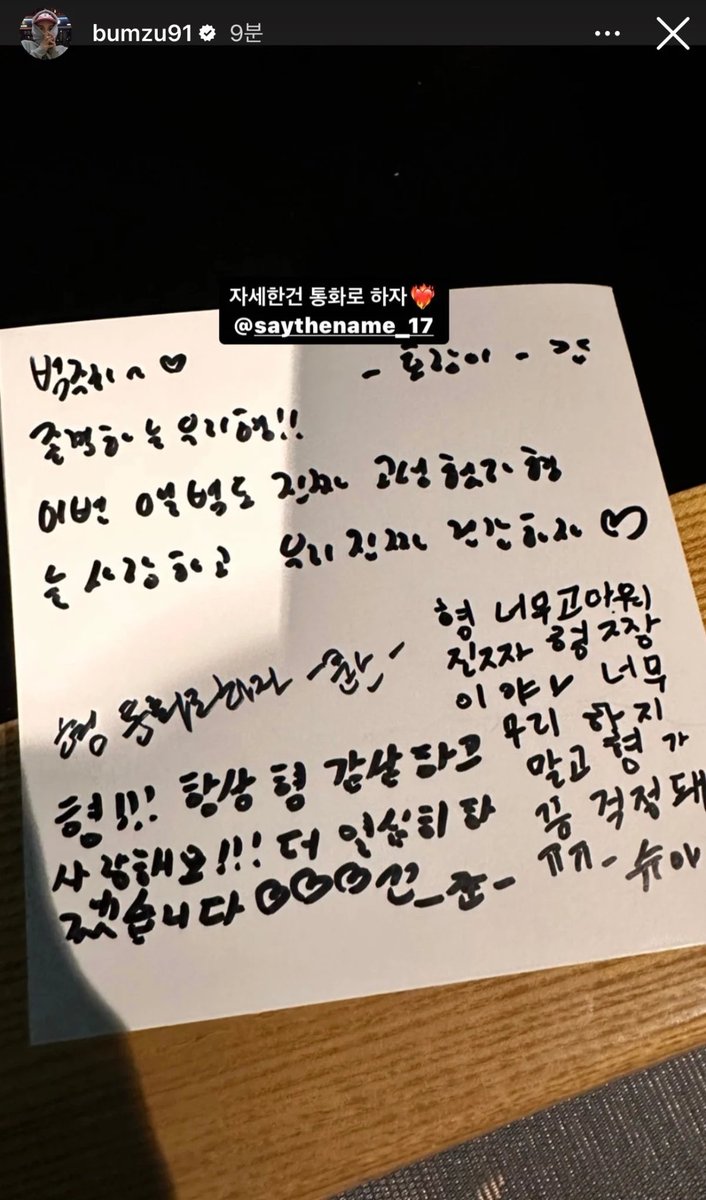 bumzu91 9분
자세한건 통화로 하자❤️‍🔥
@saythename_17
범주히~♡
- 호랑이 -
존경하는 우리형!!
이번 앨범도 진짜 고생했다 형
늘 사랑하고 우리 진짜 건강하자 ♡
형 통화로하자 -원-
형!!! 항상 형 감사하고
사랑해요!!! 더 열심히 하
겠습니다 ♡♡♡ -준-
형 너무고마워
진짜 형 짱
이야 너무
무리 하지
말고 형 가
끔 걱정돼
ㅠㅠ- 슈아